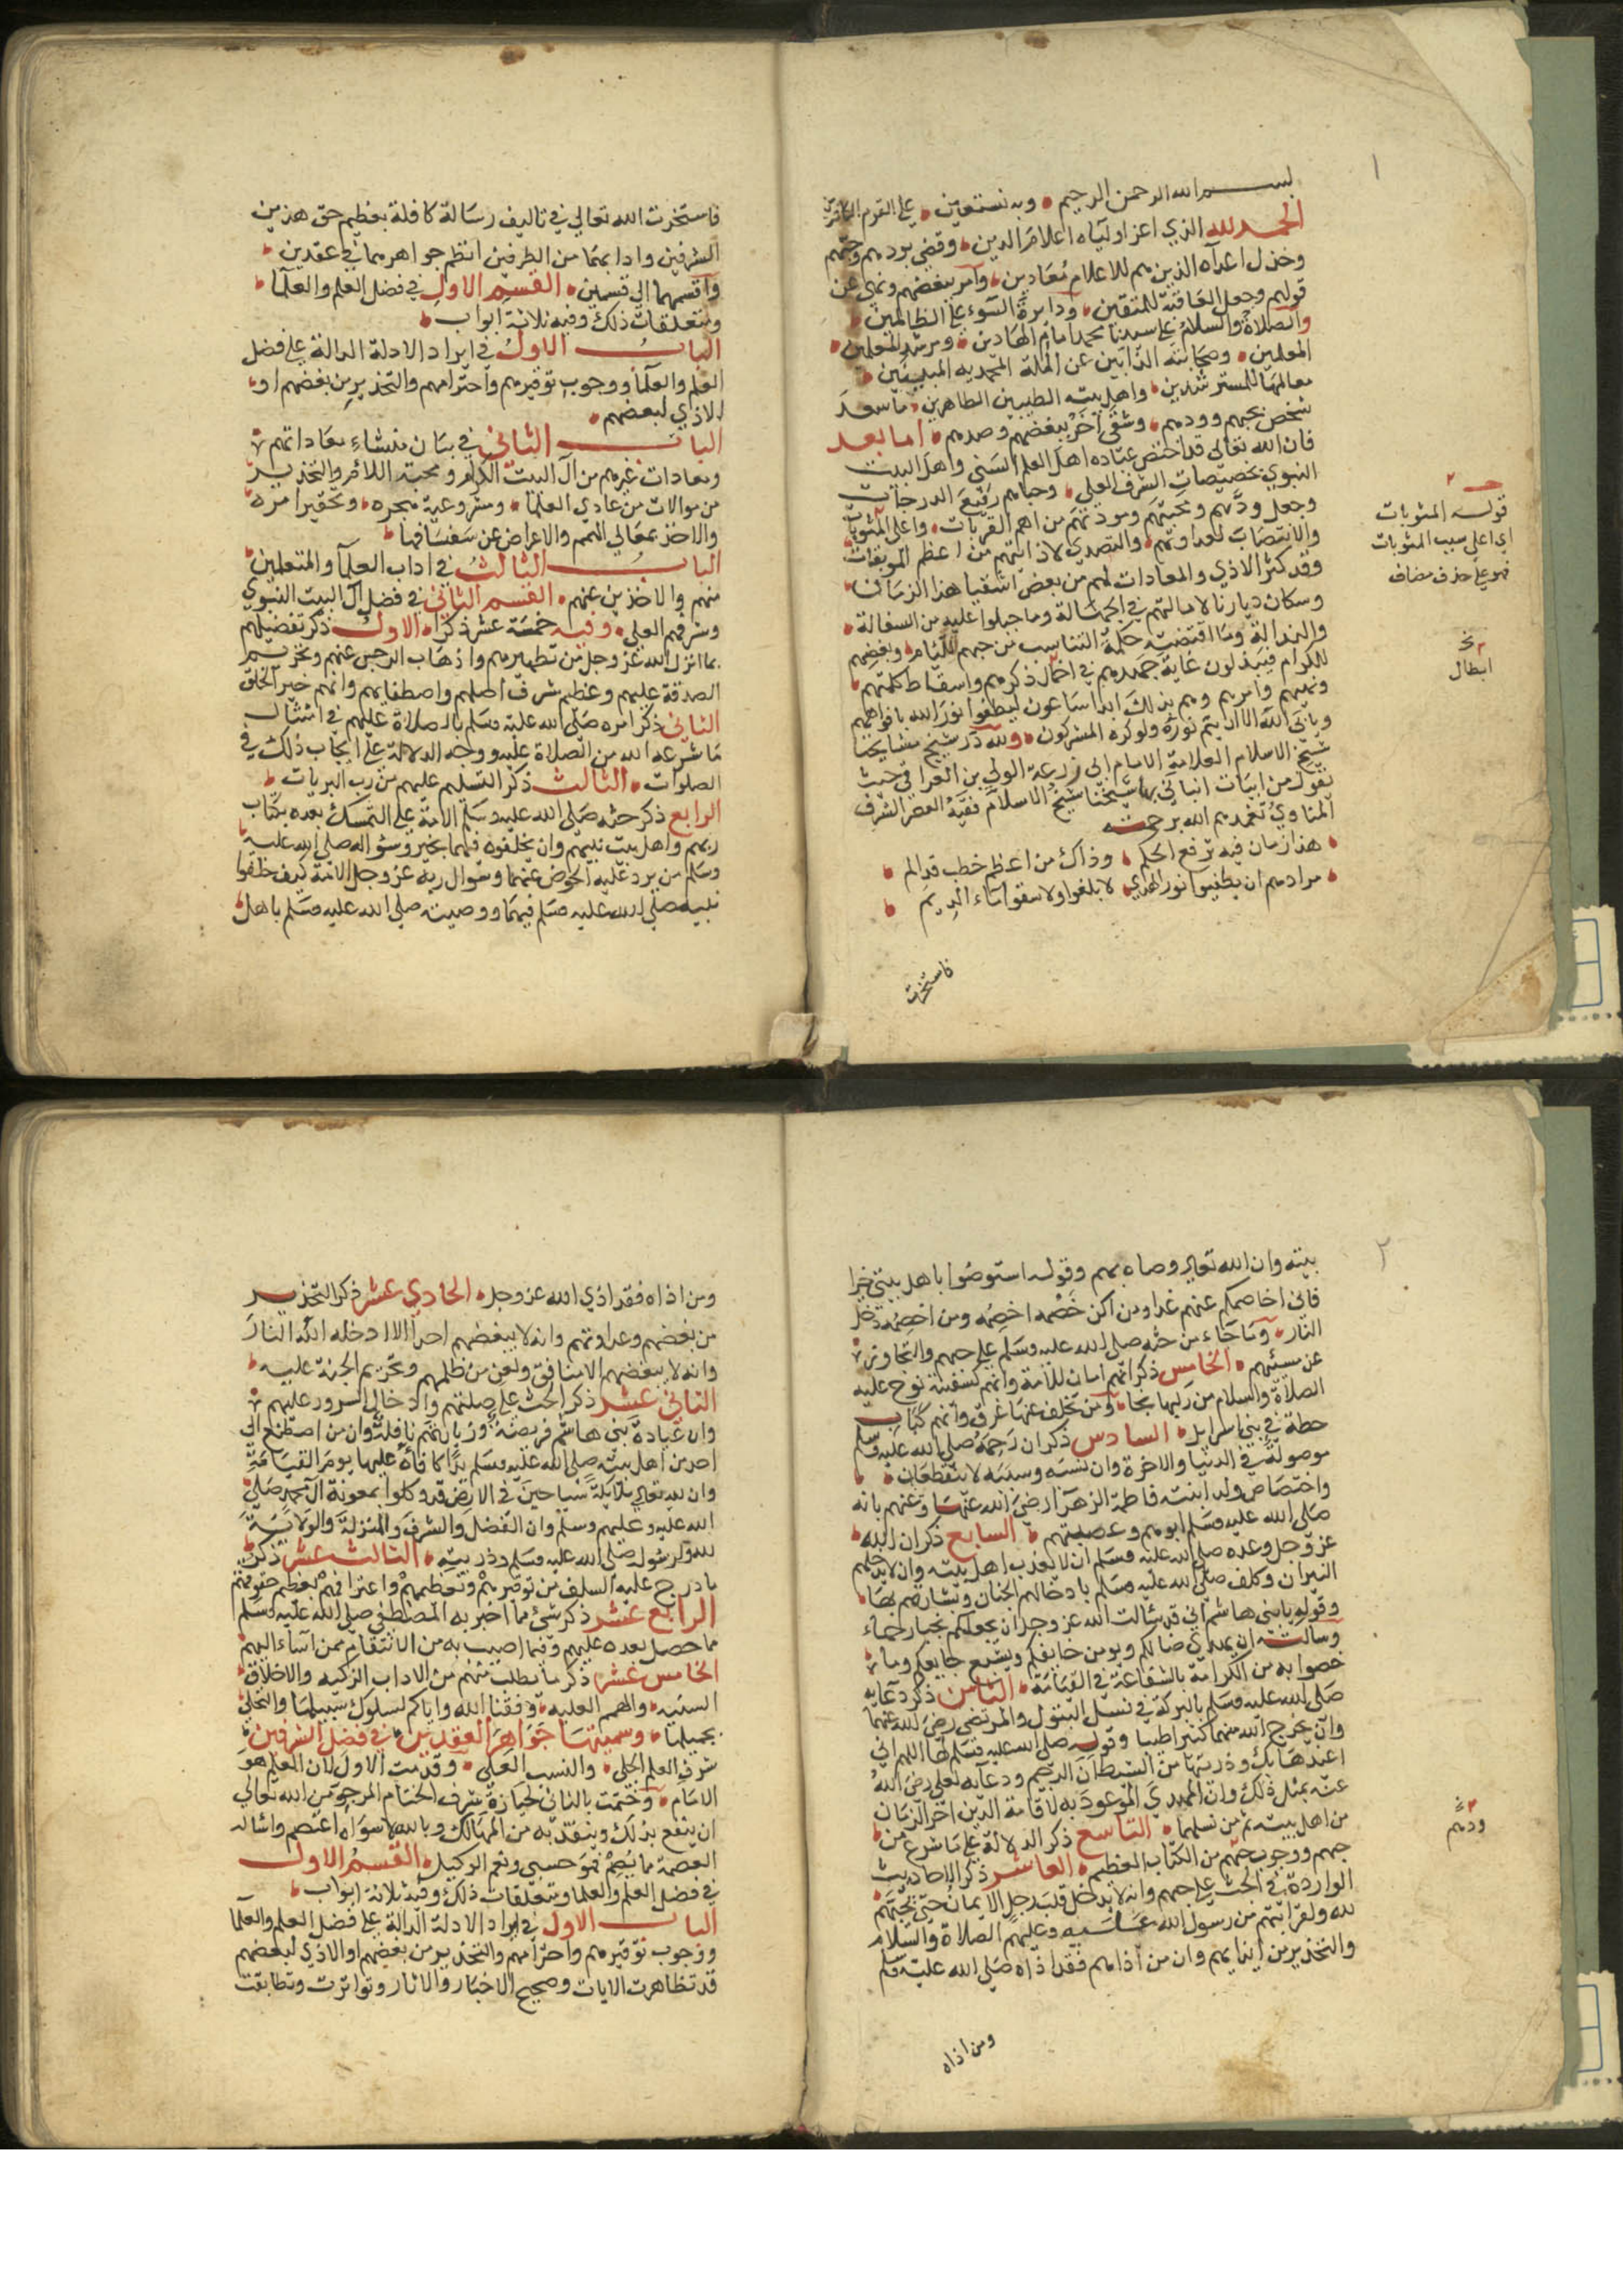 بسم الله الرحمن الرحيم وبه نستعين على القوم الكافرين
الحمد لله الذي اعز اولياه اعلام الدين وقضى بودهم وحبهم
وخذل اعداه الذين هم للاعلام معادين وامر ببغضهم ونهى عن
قولهم وجعل العاقبة للمتقين ودايرة السوء على الظالمين
والصلاة والسلام على سيدنا محمد امام الهادين ومرشد المتعلمين
المعلمين وصحابته الذابين عن الملة المحمديه المبينين
معالمها للمسترشدين واهل بيته الطيبين الطاهرين ما سعد
شخص بحبهم وودهم وشقي اخر ببغضهم وصدهم اما بعد
فان الله تعالى قد اختص عباده اهل العلم السني واهل البيت
النبوي بخصيصات الشرف العلي وحباهم رفيع الدرجات
وجعل ودهم ومحبتهم ومودتهم من اهم القربات واعلى المثوبات
والانتصاب لعداوتهم والتصدي لاذايتهم من اعظم الموبقات
وقد كثر الاذي والمعادات لهم من بعض اشقيا هذا الزمان
وسكان ديارنا لامالتهم في الجهالة وما جبلوا عليه من السفالة
والرذالة وما اقتضته حكمة التناسب من حبهم للئام وبغضهم
للكرام فيبذلون غاية جهدهم في اخمال ذكرهم واسقاط كلمتهم
ونهيهم وامرهم وهم بذلك ابدا ساعون ليطفوا نور الله بافواههم
ويابى الله الا ان يتم نوره ولو كره المشركون ولله در شيخ مشايخنا
شيخ الاسلام العلامة الامام ابي زرعة الولي بن العراقي حيث
يقول من ابيات انبانا بها شيخنا شيخ الاسلام فقيه العصر الشرف
المناوي تغمدهم الله برحمته
هذا زمان فيه ترفع الحكم وذاك من اعظم خطب قد الم
مرادهم ان يطفيوا نور الهدي لا بلغوا ولا سقوا ماء الديم
فاستخرت
قوله المثوبات
اي اعلى سبب المثوبات
فهو على حذف مضاف
ابطال
فاستخرت الله تعالى في تاليف رسالة كافلة بعظيم حق هذين
الشرفين وادابهما من الطرفين انظم جواهرهما في عقدين
واقسمها الى قسمين القسم الاول في فضل العلم والعلما
ومتعلقات ذلك وفيه ثلاثة ابواب
الباب الاول في ايراد الادلة الدالة على فضل
العلم والعلما ووجوب توقيرهم واحترامهم والتحذير من بغضهم او
الاذي لبعضهم
الباب الثاني في بيان منشاء معاداتهم
ومعادات غيرهم من آل البيت الكرام ومحبة اللائم والتحذير
من موالات من عادي العلما ومشروعية هجره وتحقير امره
والاخذ بمعالي الهمم والاعراض عن سفسافها
الباب الثالث في اداب العلما والمتعلمين
منهم والاخذين عنهم القسم الثاني في فضل آل البيت النبوي
وشرفهم العلي وفيه خمسة عشر ذكرا الاول ذكر تفضيلهم
بما انزل الله عز وجل من تطهيرهم واذهاب الرجس عنهم وتحريم
الصدقة عليهم وعظيم شرف اصلهم واصطفايهم وانهم خير الخلق
الثاني ذكر امره صلى الله عليه وسلم بالصلاة عليهم في امتثال
ما شرعه الله من الصلاة عليه ووجه الدلالة على ايجاب ذلك في
الصلوات الثالث ذكر التسليم عليهم من رب البريات
الرابع ذكر حثه صلى الله عليه وسلم الامة على التمسك بعده بكتاب
ربهم واهل بيت نبيهم وان يخلفوه فيهما بخير وسواله صلى الله عليه
وسلم من يرد عليه الحوض عنهما وسوال ربه عز وجل الامة كيف خلفوا
نبيه صلى الله عليه وسلم فيهما ووصيته صلى الله عليه وسلم باهل
بيته وان الله تعالى وصاه بهم وقوله استوصوا باهل بيتي خيرا
فاني اخاصمكم عنهم غدا ومن اكن خصمه اخصمه ومن اخصمه دخل
النار وما جاء من حثه صلى الله عليه وسلم على حبهم والتجاوز
عن مسيئهم الخامس ذكر انهم امان للامة وانهم كسفينة نوح عليه
الصلاة والسلام من ركبها نجا ومن تخلف عنها غرق وانهم كباب
حطة في بني اسرايل السادس ذكر ان رحمه صلى الله عليه وسلم
موصولة في الدنيا والاخرة وان نسبه وسببه لا ينقطعان
واختصاص ولد ابنته فاطمة الزهرا رضي الله عنها وعنهم بانه
صلى الله عليه وسلم ابوهم وعصبتهم السابع ذكر ان الله
عز وجل وعده صلى الله عليه وسلم ان لا يعذب اهل بيته وان لا يدخلهم
النيران وكلف صلى الله عليه وسلم بادخالهم الجنان وبشارتهم بها
وقوله يا بني هاشم اني قد سالت الله عز وجل ان يجعلكم نجبا رحماء
وسالته ان يهدي ضالكم ويومن خايفكم ويشبع جايعكم وما
خصوا به من الكرامة بالشفاعة في القيامة الثامن ذكر دعايه
صلى الله عليه وسلم بالبركة في نسل البتول والمرتضى رضي الله عنهما
وان يخرج الله منهما كثيرا طيبا وقوله صلى الله عليه وسلم لها اللهم اني
اعيذها بك وذريتها من الشيطان الرجيم ودعايه لعلي رضي الله
عنه بمثل ذلك وان المهدي الموعود به لاقامة الدين اخر الزمان
من اهل بيته ثم من نسلهما التاسع ذكر الدلالة على ما شرع من
حبهم ووجوب حبهم من الكتاب العظيم العاشر ذكر الاحاديث
الواردة في الحث على حبهم وانه لا يدخل قلب رجل الايمان حتى يحبهم
لله ولقرابتهم من رسول الله عليه وعليهم الصلاة والسلام
والتحذير من ايذايهم وان من اذاهم فقد اذاه صلى الله عليه وسلم
ومن اذاه
ودهم
ومن اذاه فقد اذي الله عز وجل الحادي عشر ذكر التحذير
من بغضهم وعداوتهم وانه لا يبغضهم احد الا ادخله الله النار
وانه لا يبغضهم الا منافق ولعن من ظلمهم وتحريم الجنة عليه
الثاني عشر ذكر الحث على صلتهم وادخال السرور عليهم
وان عيادة بني هاشم فريضة وزيارتهم نافلة وان من اصطنع الى
احد من اهل بيته صلى الله عليه وسلم يدا كافاه عليها يوم القيامة
وان لله تعالى ملايكة سياحين في الارض قد وكلوا بمعونة آل محمد صلى
الله عليه وعليهم وسلم وان الفضل والشرف والمنزلة والولاية
لله ولرسوله صلى الله عليه وسلم وذريته الثالث عشر ذكر
ما درج عليه السلف من توقيرهم وتعظيمهم واعترافهم بعظيم حقوقهم
الرابع عشر ذكر شئ مما اخبر به المصطفى صلى الله عليه وسلم
مما حصل بعده عليهم وفيما اصيب به من الانتقام ممن اساء اليهم
الخامس عشر ذكر ما يطلب منهم من الاداب الزكيه والاخلاق
السنيه والهمم العليه وفقنا الله واياكم لسلوك سبيلها والتحلي
بجميلها وسميتها جواهر العقدين في فضل الشرفين
شرف العلم الجلي والنسب العلي وقدمت الاول لان العلم هو
الامام وختمت بالثاني لحيازة شرف الختام المرجو من الله تعالى
ان ينفع بذلك وينقذ به من المهالك وبالله لا سواه اعتصم واساله
العصمة مما يصم فهو حسبي ونعم الوكيل القسم الاول
في فضل العلم والعلما ومتعلقات ذلك وفيه ثلاثة ابواب
الباب الاول في ايراد الادلة الدالة على فضل العلم والعلما
ووجوب توقيرهم واحترامهم والتحذير من بغضهم او الاذي لبعضهم
قد تظاهرت الايات وصحيح الاخبار والاثار وتواترت وتطابقت